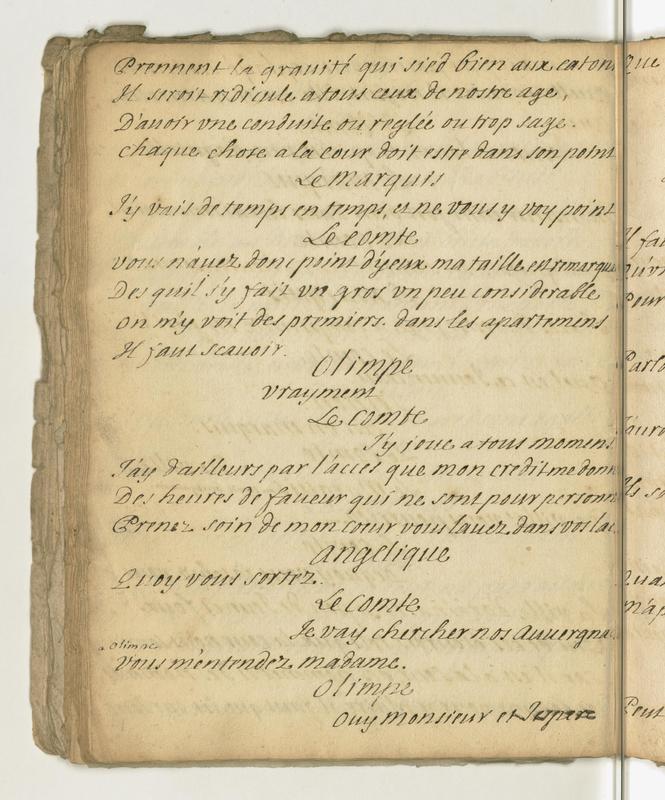 Prennent la gravité qui sied bien aux caton
Il seroit ridicule a tous ceux de nostre age,
D'avoir vne conduite ou reglée ou trop sage.
chaque chose a la cour doit estre dans son point
Le marquis
J'y vais de temps en temps, et ne vous y voy point
Le comte
vous n'auez donc point d'yeux ma taille est remarqua
Des quil s'y fait vn gros vn peu considerable
on m'y voit des premiers. dans les apartemens
Il faut scauoir.
Olimpe
vrayment
Le comte
J'y joue a tous momens
J'ay d'ailleurs par l'accés que mon credit me donn
Des heures de faueur qui ne sont pour personn
Prenez soin de mon coeur vous lauez dans vos lac
angelique
Quoy vous sortez.
Le comte
Je vay chercher nos Auuergna
a olimpe
vous m'entendez madame.
Olimpe
Ouy monsieur et J'espere
Que
Il fau
Qu'vn
Pour
Parlo
J'auro
Ils so
Quan
m'ap
Peut